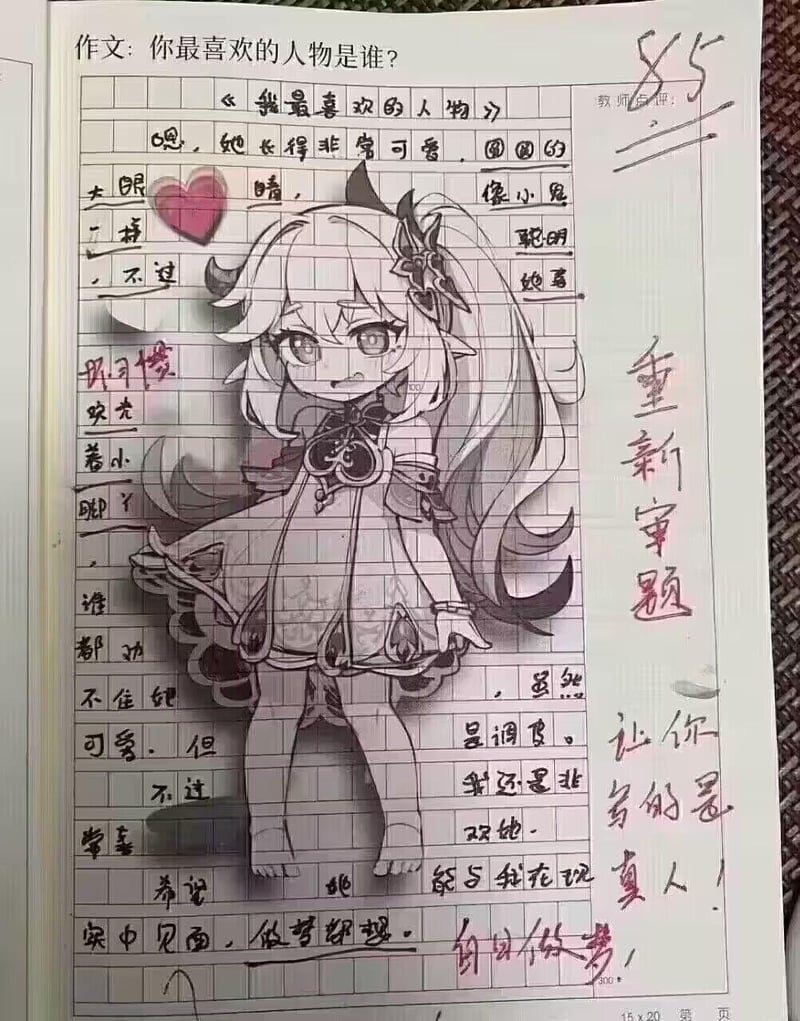 作文：你最喜欢的人物是谁？
85
教师点评：
《我最喜欢的人物》
嗯，她长得非常可爱，圆圆的
大眼睛，像小鬼
一样聪明
，不过她喜
欢光
着小
脚丫
，
谁
都劝
不住她，虽然
可爱，但是调皮。
不过我还是非
常喜欢她。
希望她能与我在现
实中见面，做梦都想。
白日做梦，
重新审题
让你
写的是
真人！
100
300
15×20 第 页